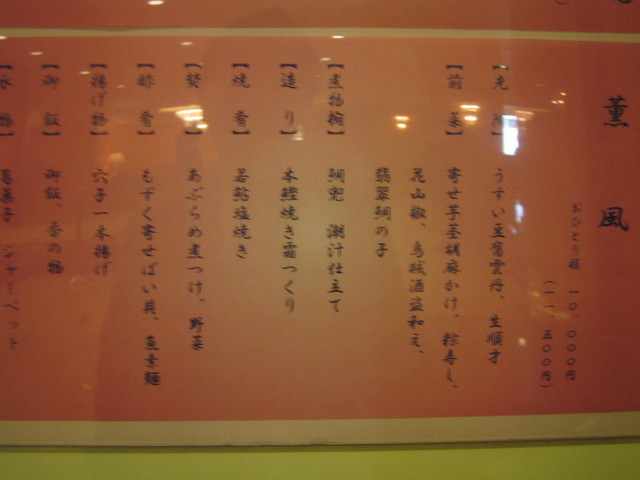 薫風
おひとり様 一〇、〇〇〇円
(一一、五〇〇円)
【先附】 うすい豆腐雲丹、生順才
【前菜】 寄せ芋茎胡麻かけ、粽寿し、
花山椒、烏賊酒盗和え、
翡翠鯛の子
【煮物椀】 鯛兜 潮汁仕立て
【造り】 本鰹焼き霜つくり
【焼肴】 若鮎塩焼き
【焚 】 あぶらめ煮つけ、野菜
【酢肴】 もずく寄せばい貝、魚素麺
【揚げ物】 穴子一本揚げ
【御飯】 御飯、香の物
菓子 シャーベット